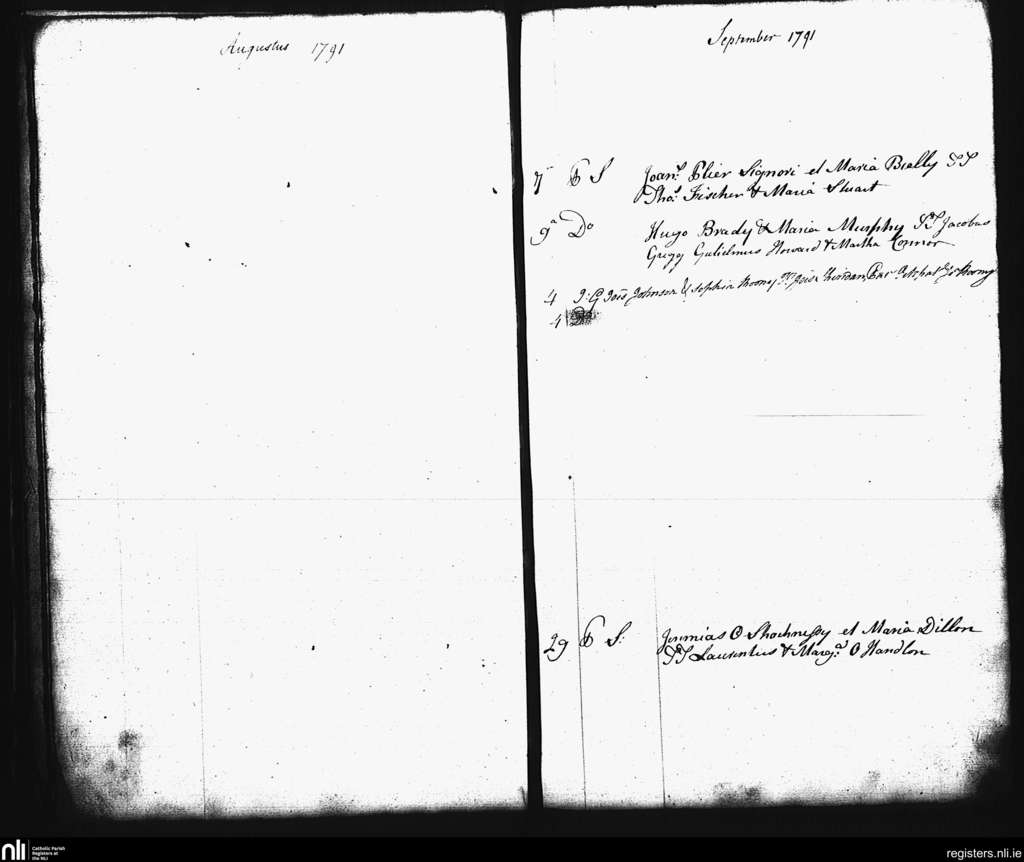 Augustus 1791
September 1791
7 P S Joans Plier Signori et Maria Bially SS
Thos Fischer & Maria Stuart
9a Do Hugo Brady & Maria Murphy SS Jacobus
Gregg Gulielmus Howard & Martha Connor
4 J: G Jois Johnson & Sophia Roony
4
29 P S: Jeremias O Shochnessy et Maria Dillon
SS Laurentius & Marga O Handlon
nli
Catholic Parish
Registers at
the NLI
registers.nli.ie